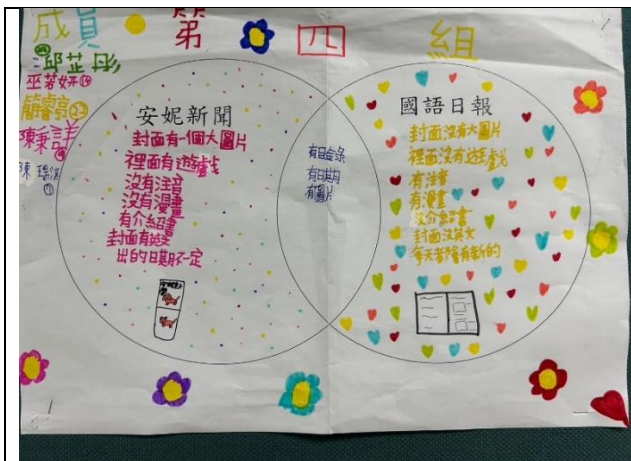 成員 第四組
邱芷彤
巫若妍
陳
安妮新聞
封面有一個大圖片
裡面有遊戲
沒有注音
沒有漫畫
有介紹書
封面有英文
出的日期不一定
有目錄
有日期
有圖片
國語日報
封面沒有大圖片
裡面沒有遊戲
有注音
有漫畫
沒介紹書
封面沒英文
每天都會有新的